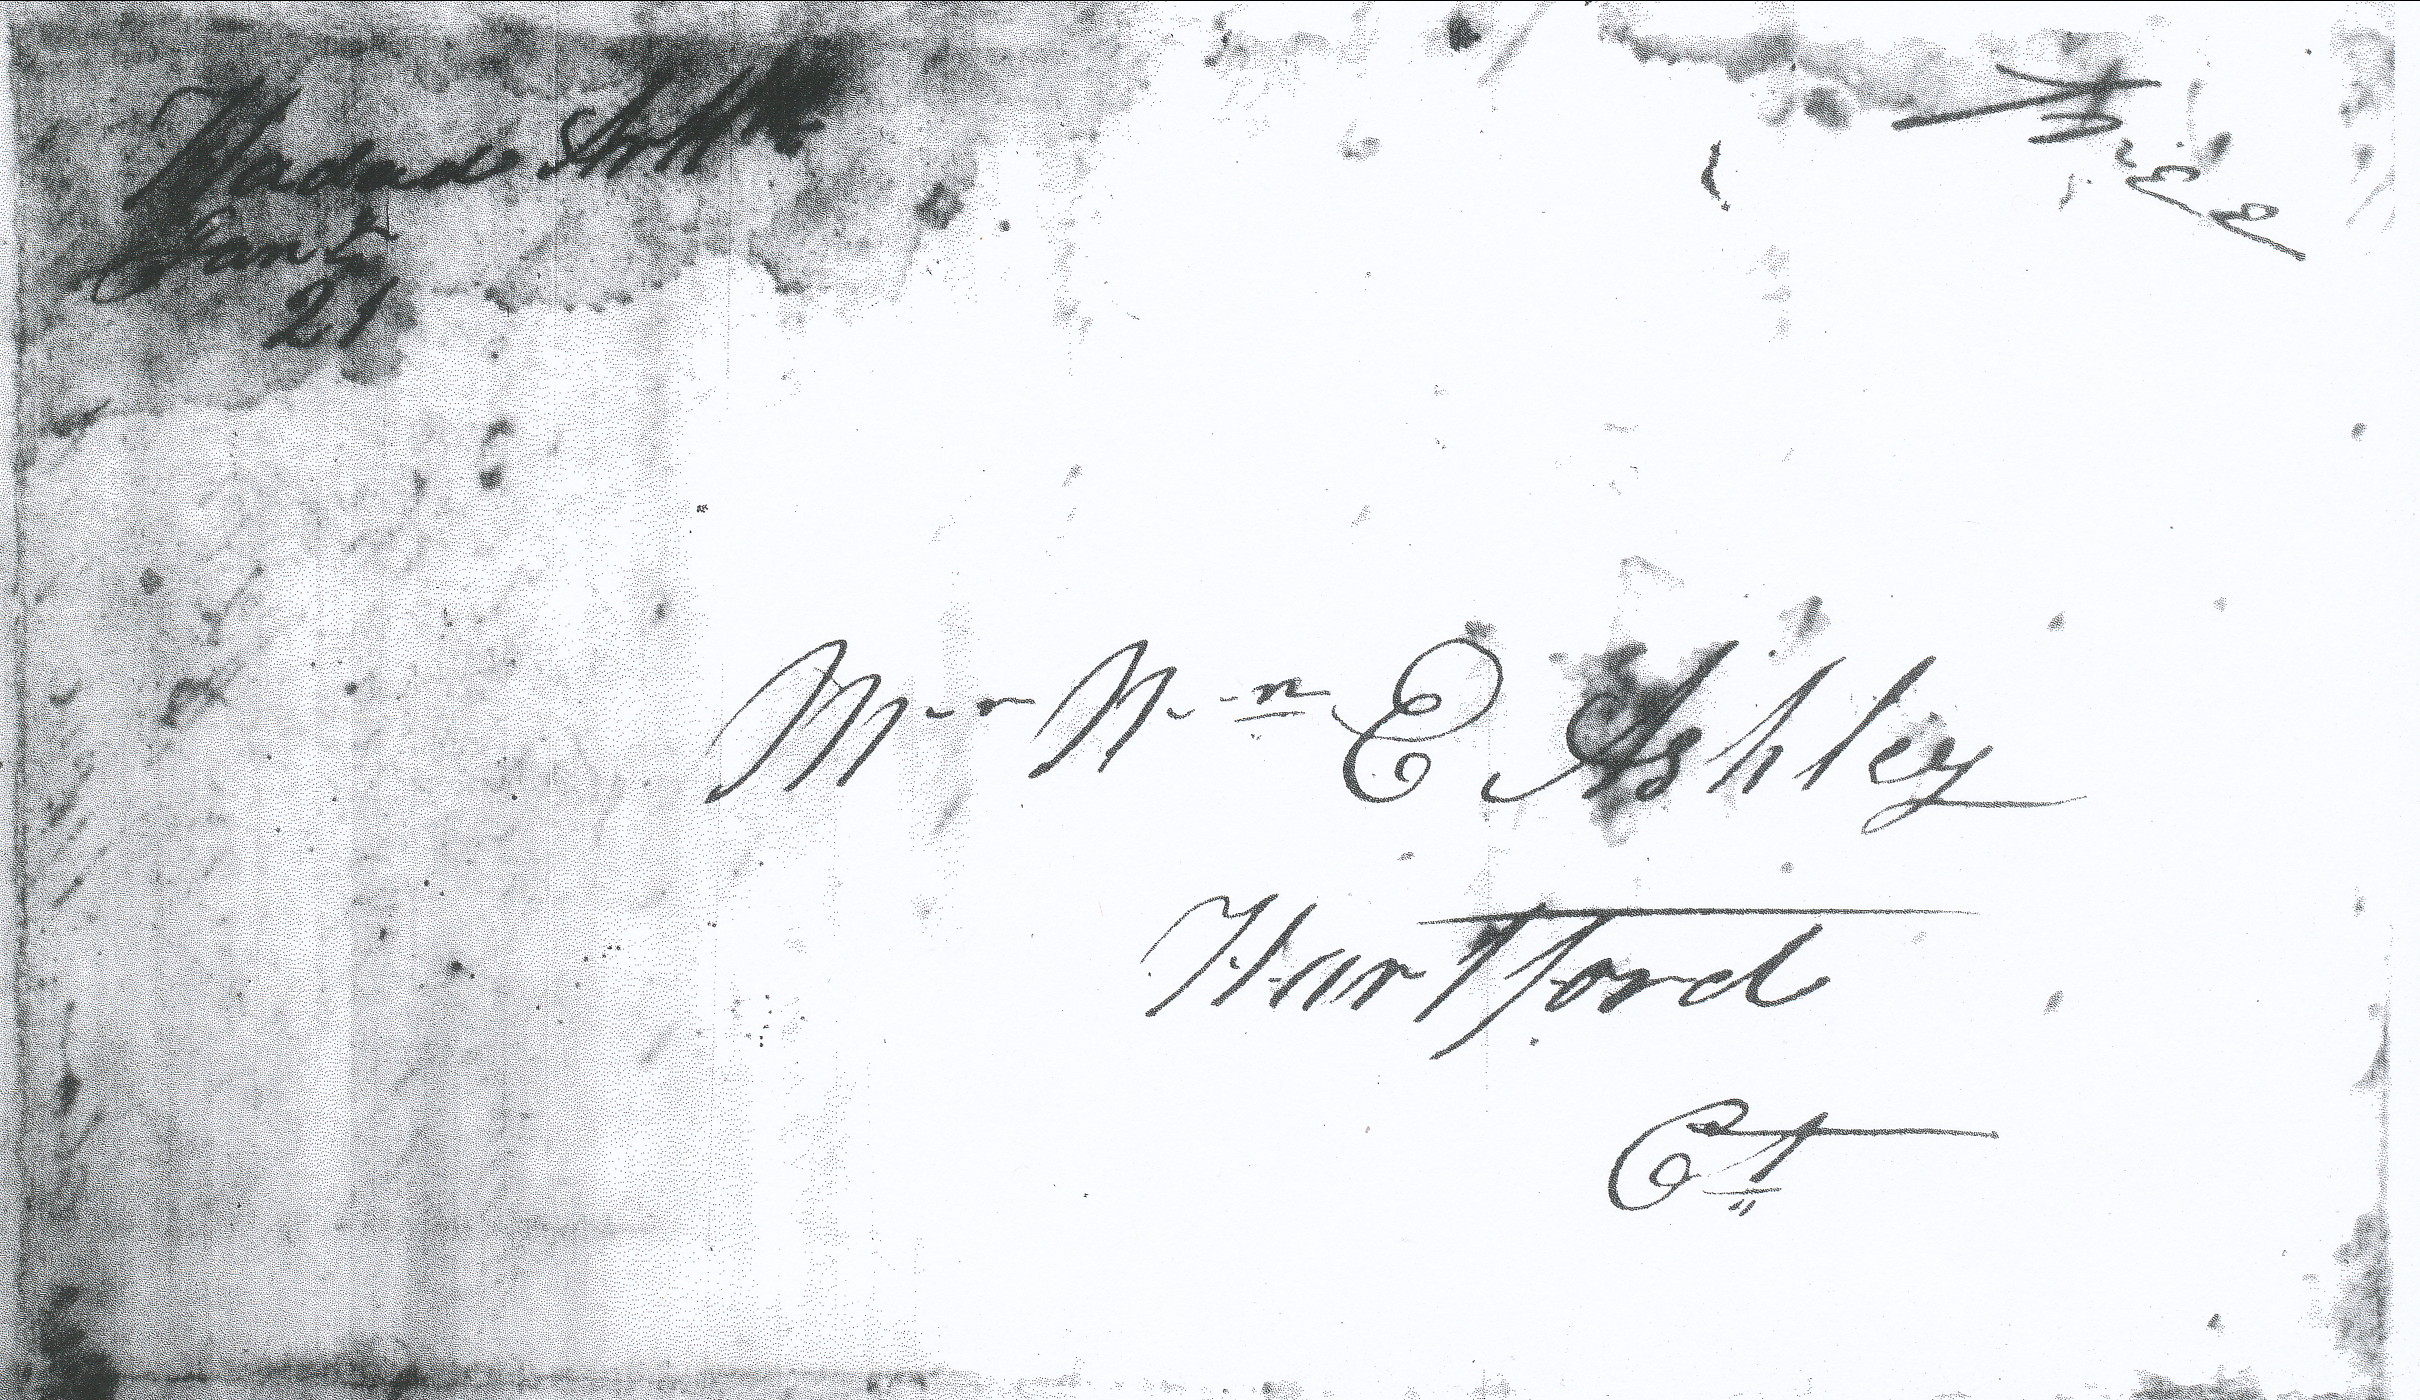 Jany
21
Free
Mr Wm E Ashley
Hartford
Ct